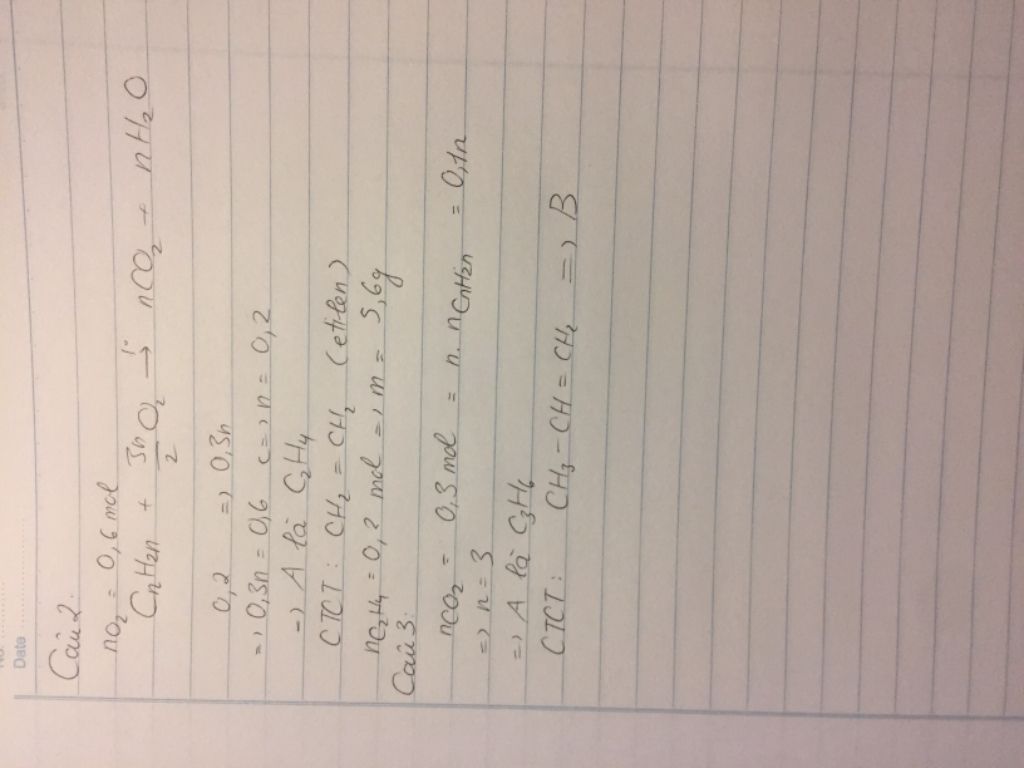 Date
Câu 2:
nO₂ = 0,6 mol
CnH2n + 3n/2 O₂ → nCO₂ + nH₂O
0,2 => 0,3n
=> 0,3n = 0,6 <=> n = 0,2
=> A là C₂H₄
CTCT : CH₂ = CH₂ (etilen)
nC₂H₄ = 0,2 mol => m = 5,6g
Câu 3:
nCO₂ = 0,3 mol = n. nCnH2n = 0,1n
=> n = 3
=> A là C₃H₆
CTCT : CH₃ - CH = CH₂ => B